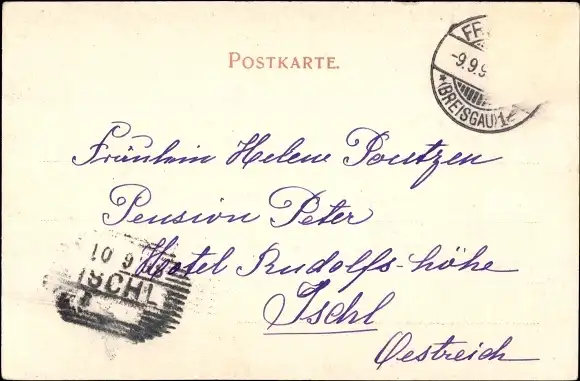 POSTKARTE.
-9.9.9
*(BREISGAU)1
Fräulein Helene Pontzen
Pension Peter
Hotel Rudolfs-höhe
Ischl
Oestreich
10 9
ISCHL